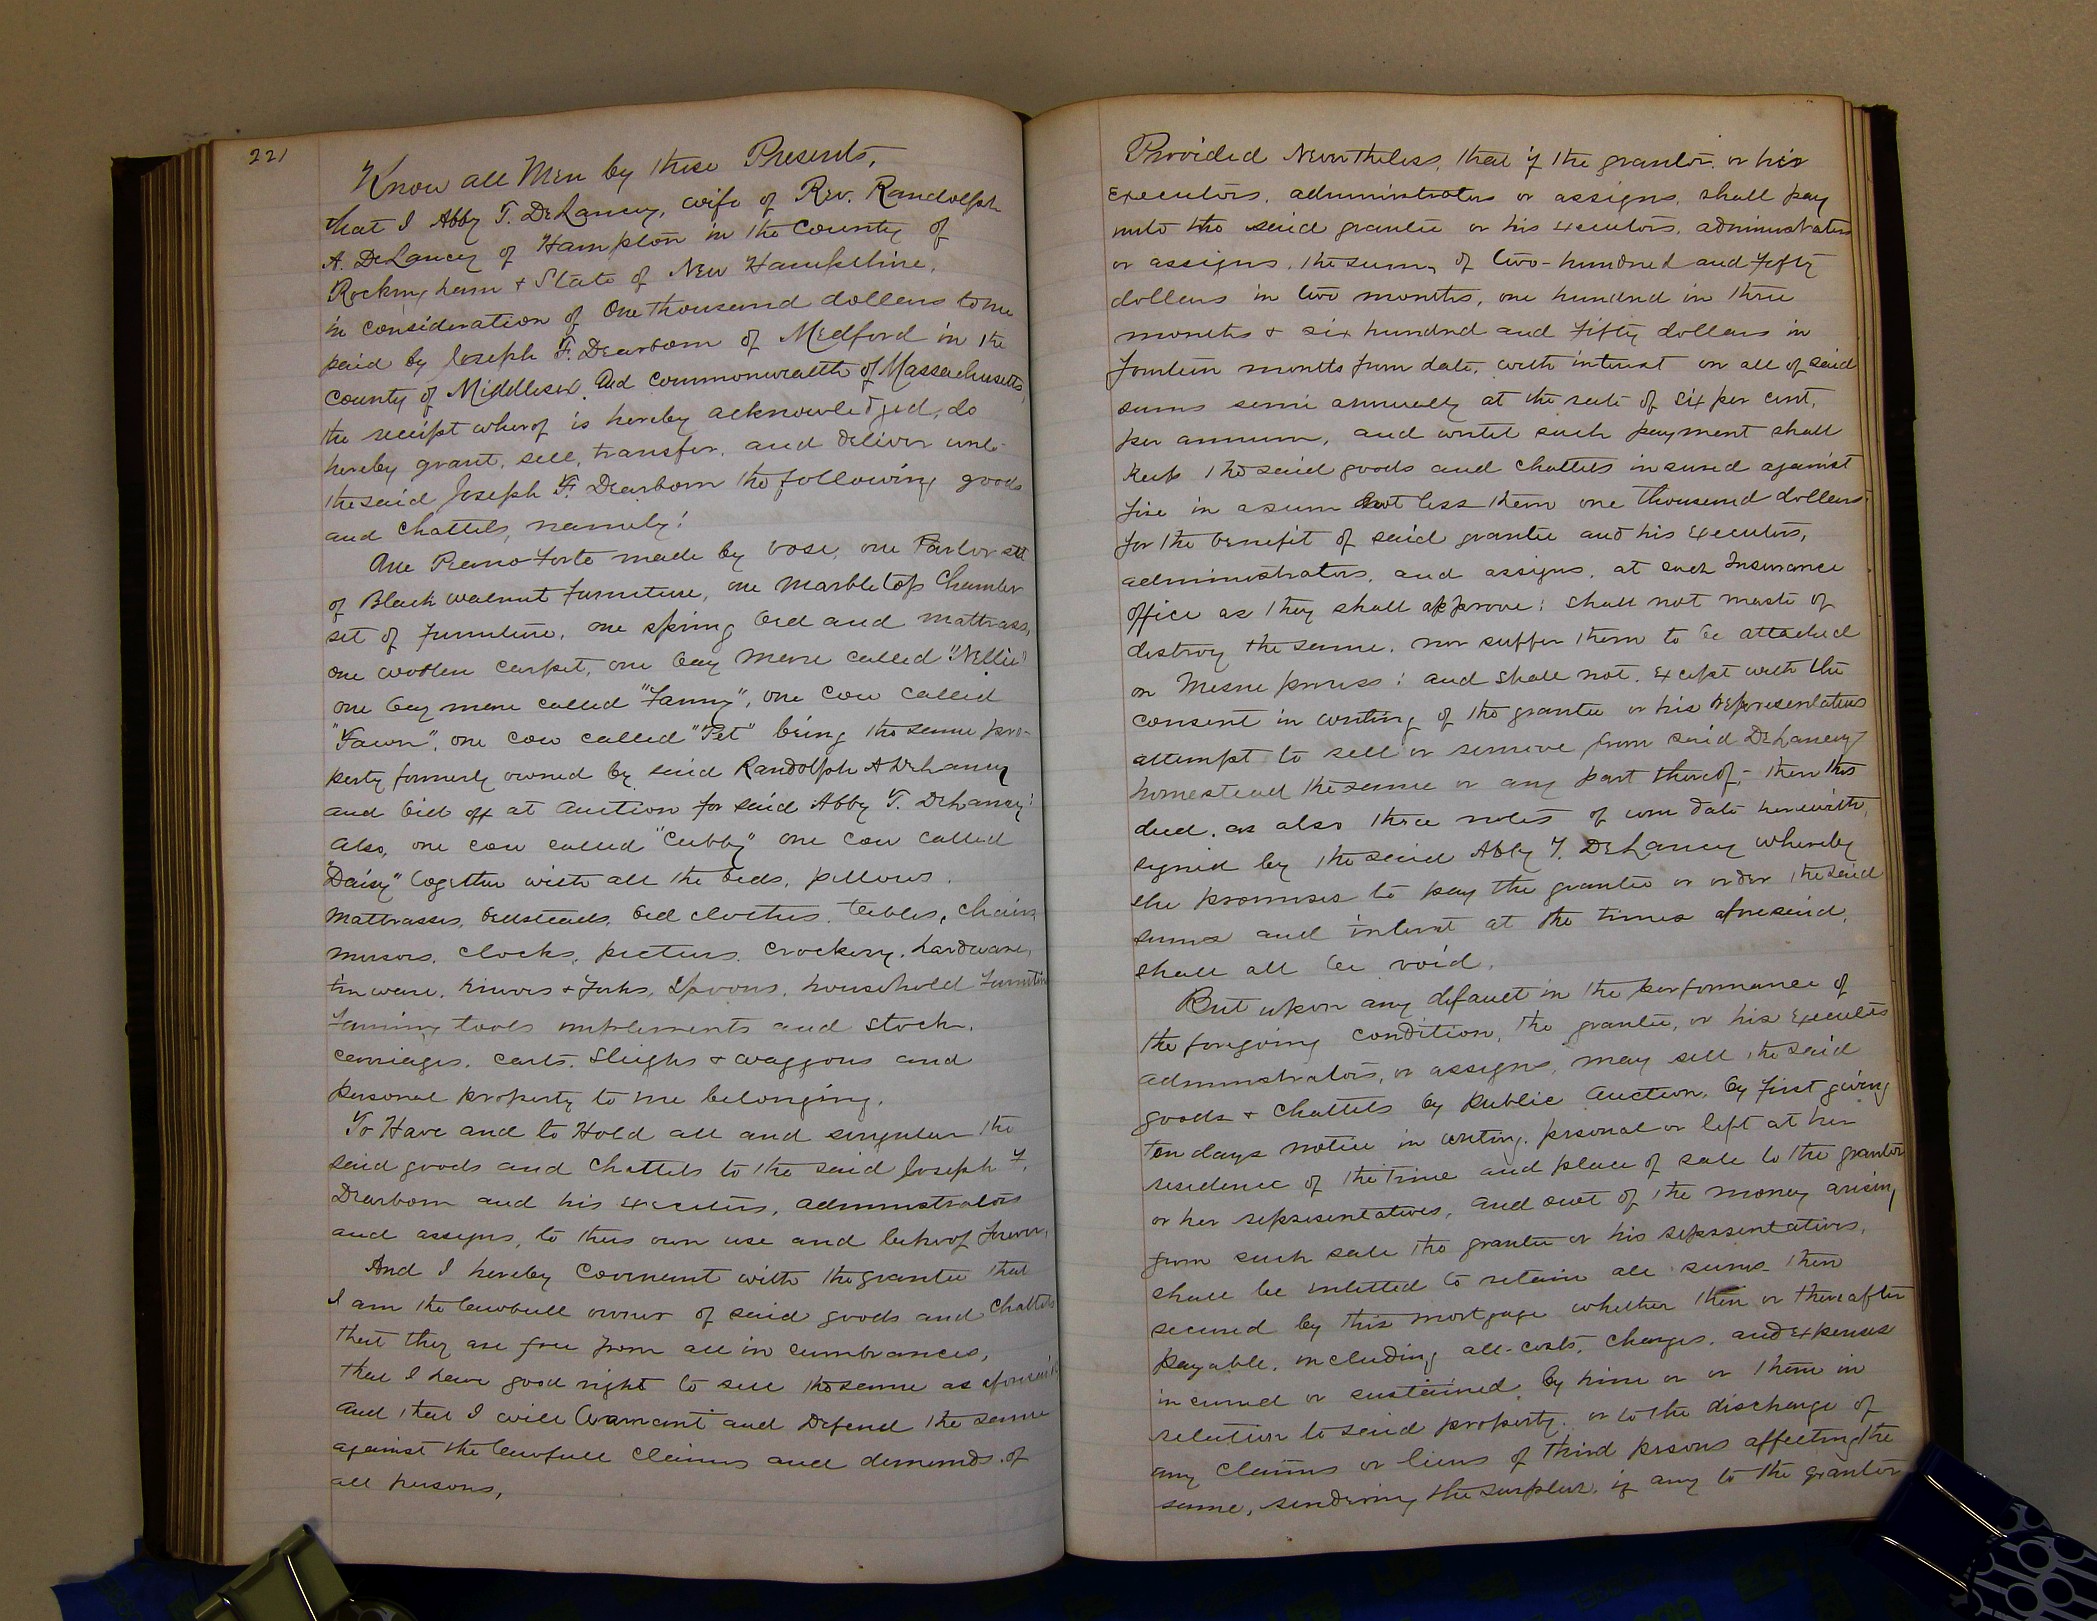 221
Know all Men by these Presents,
that I Abby T. DeLancey, wife of Rev. Randolph
A. DeLancey of Hampton in the County of
Rockingham & State of New Hampshire,
in consideration of One thousand dollars to me
paid by Joseph F. Dearborn of Medford in the
County of Middlesex, and Commonwealth of Massachusetts,
the receipt wherof is hereby acknowledged, do
hereby grant, sell, transfer, and deliver unto
the said Joseph F. Dearborn the following goods
and chattels, namely:
One Piano Forte made by Vose, one Parlor sett
of Black walnut Furniture, one Marble top Chamber
set of Furniture, one spring bed and mattrass,
one woolen carpet, one bay mare called "Nellie"
one bay mare called "Fanny", one cow called
"Fawn", one cow called "Pet" being the same pro-
perty formerly owned by said Randolph A DeLancey
and bid off at Auction for said Abby T. DeLancey:
Also, one cow called "Cubby" one cow called
"Daisy" together with all the beds, pillows,
Mattrasses, bedsteads, bed clothes, tables, chairs
mirrors, clocks, pictures, crockery, hardware,
tin ware, knives & forks, spoons, household Furniture
Farming tools implements and stock,
carriages, carts, sleighs & waggons and
personal property to me belonging.
To Have and to Hold all and singular the
said goods and chattels to the said Joseph F.
Dearborn and his executors, administrators
and assigns, to their own use and behoof forever,
And I hereby Covenant with the grantee that
I am the lawfull owner of said goods and Chattels
that they are free from all in cumbrances,
that I have good right to sell the same as aforesaid
and that I will Warrant and Defend the same
against the lawfull claims and demands of
all persons,
Provided Nevertheless, that if the grantor, or her
executors, administrators or assigns, shall pay
unto the said grantee or his executors, administrators
or assigns, the sum, of two-hundred and fifty
dollars in two months, one hundred in three
months & six hundred and fifty dollars in
fourteen months from date, with interest on all of said
sums semi annually at the rate of six per cent,
per annum, and until such payment shall
keep the said goods and chattels insured against
fire in a sum not less than one thousand dollars
for the benefit of said grantee and his Executors,
administrators, and assigns, at such Insurance
office as they shall approve; shall not waste of
destroy the same, nor suffer them to be attached
on Mesne process; and shall not, except with the
consent in writing of the grantee or his representatives
attempt to sell or remove from said DeLancey
homestead the same or any part thereof;- then this
deed, as also three notes of even date herewith,
signed by the said Abby T. DeLancey whereby
she promises to pay the grantee or order the said
sums and interest at the times aforesaid,
shall all be void,
But upon any default in the performance of
the foregoing condition, the grantee, or his Executors
administrators, or assigns, may sell the said
goods & chattels by public Auction, by first giving
ten days notice in writing, personal or left at her
residence of the time and place of sale to the grantor
or her representatives, and out of the money arising
from such sale the grantee or his representatives,
shall be intitled to retain all sums then
secured by this mortgage whether then or thereafter
payable, including all-costs, charges, and expenses
incurred or sustained by him or or them in
relation to said property, or to the discharge of
any claims or liens of third persons affecting the
same, rendering the surplus, if any to the grantor